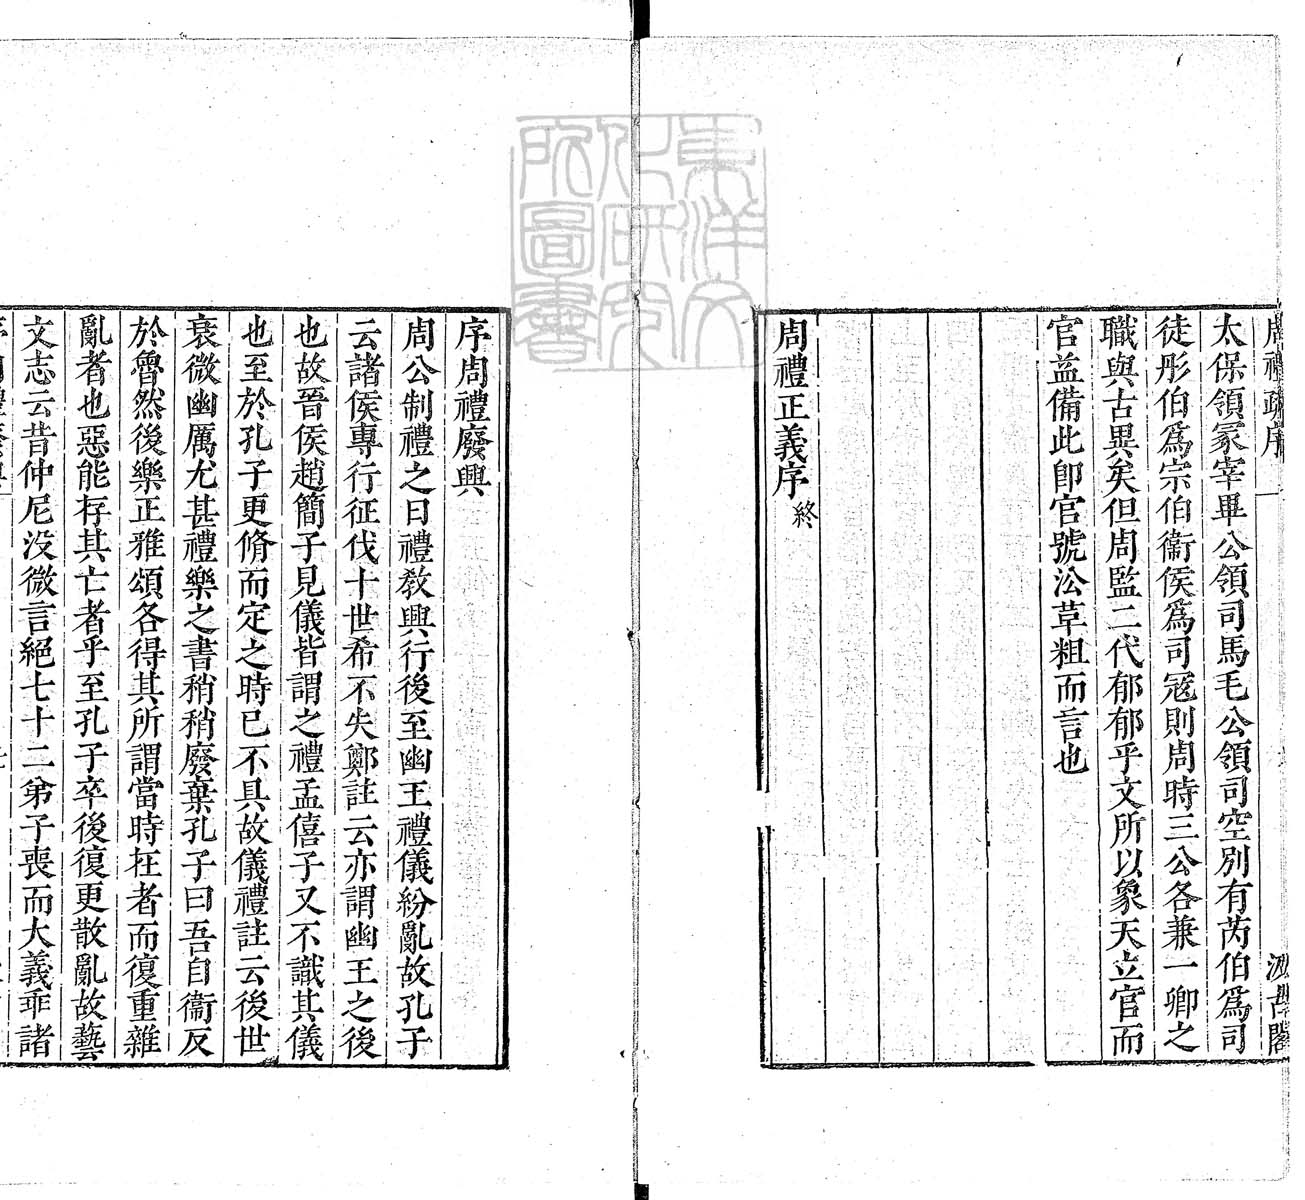 周禮疏序
汲古閣
太保領冢宰畢公領司馬毛公領司空別有芮伯爲司
徒彤伯爲宗伯衞侯爲司寇則周時三公各兼一卿之
職與古異矣但周監二代郁郁乎文所以象天立官而
官益備此卽官號㳂革粗而言也
周禮正義序 終
序周禮廢興
周公制禮之日禮敎興行後至幽王禮儀紛亂故孔子
云諸侯專行征伐十世希不失鄭註云亦謂幽王之後
也故晉侯趙簡子見儀皆謂之禮孟僖子又不識其儀
也至於孔子更脩而定之時已不具故儀禮註云後世
衰微幽厲尤甚禮樂之書稍稍廢棄孔子曰吾自衞反
於魯然後樂正雅頌各得其所謂當時在者而復重雜
亂者也惡能存其亡者乎至孔子卒後復更散亂故藝
文志云昔仲尼没微言絕七十二弟子喪而大義乖諸
東洋文
化硏究
所圖書